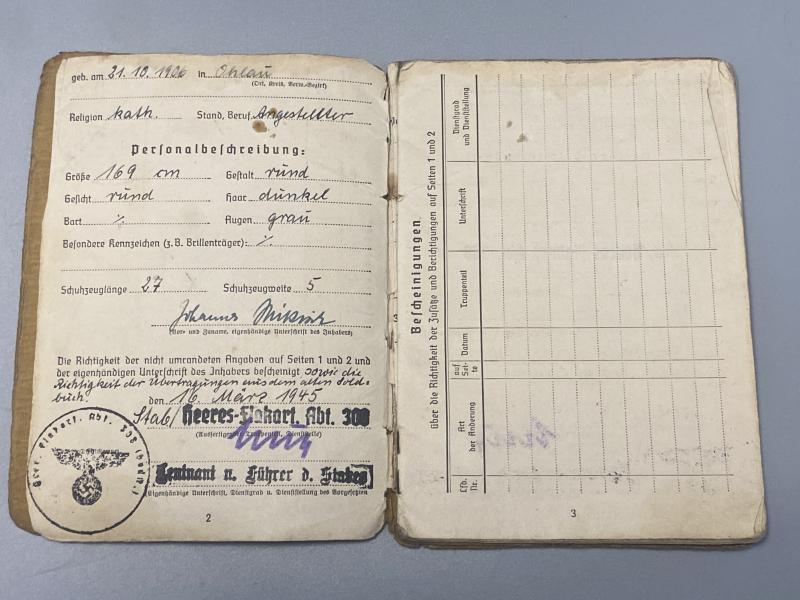 geb. am 21.10.1906 in Ohlau
(Ort, Kreis, Verw.-Bezirk)
Religion kath. Stand, Beruf Angestellter
Personalbeschreibung:
Größe 169 cm Gestalt rund
Gesicht rund Haar dunkel
Bart ./. Augen grau
Besondere Kennzeichen (z. B. Brillenträger): ./.
Schuhzeuglänge 27 Schuhzeugweite 5
Johannes
(Vor- und Zuname, eigenhändige Unterschrift des Inhabers)
Die Richtigkeit der nicht umrandeten Angaben auf Seiten 1 und 2 und
der eigenhändigen Unterschrift des Inhabers bescheinigt sowie die
Richtigkeit der Übertragungen aus dem alten Sold-
buch. den 16. März 1945
Stab/ Heeres-Flakart. Abt. 308
(Ausfertigender Truppenteil, Dienststelle)
Leutnant u. Führer d. Stabes
(Eigenhändige Unterschrift, Dienstgrad u. Dienststellung des Vorgesetzten)
Heer. Flakart. Abt. 308
2
Bescheinigungen
über die Richtigkeit der Zusätze und Berichtigungen auf Seiten 1 und 2
Lfd. Nr.
Art der Änderung
auf Sei-te
Datum
Truppenteil
Unterschrift
Dienstgrad und Dienststellung
3